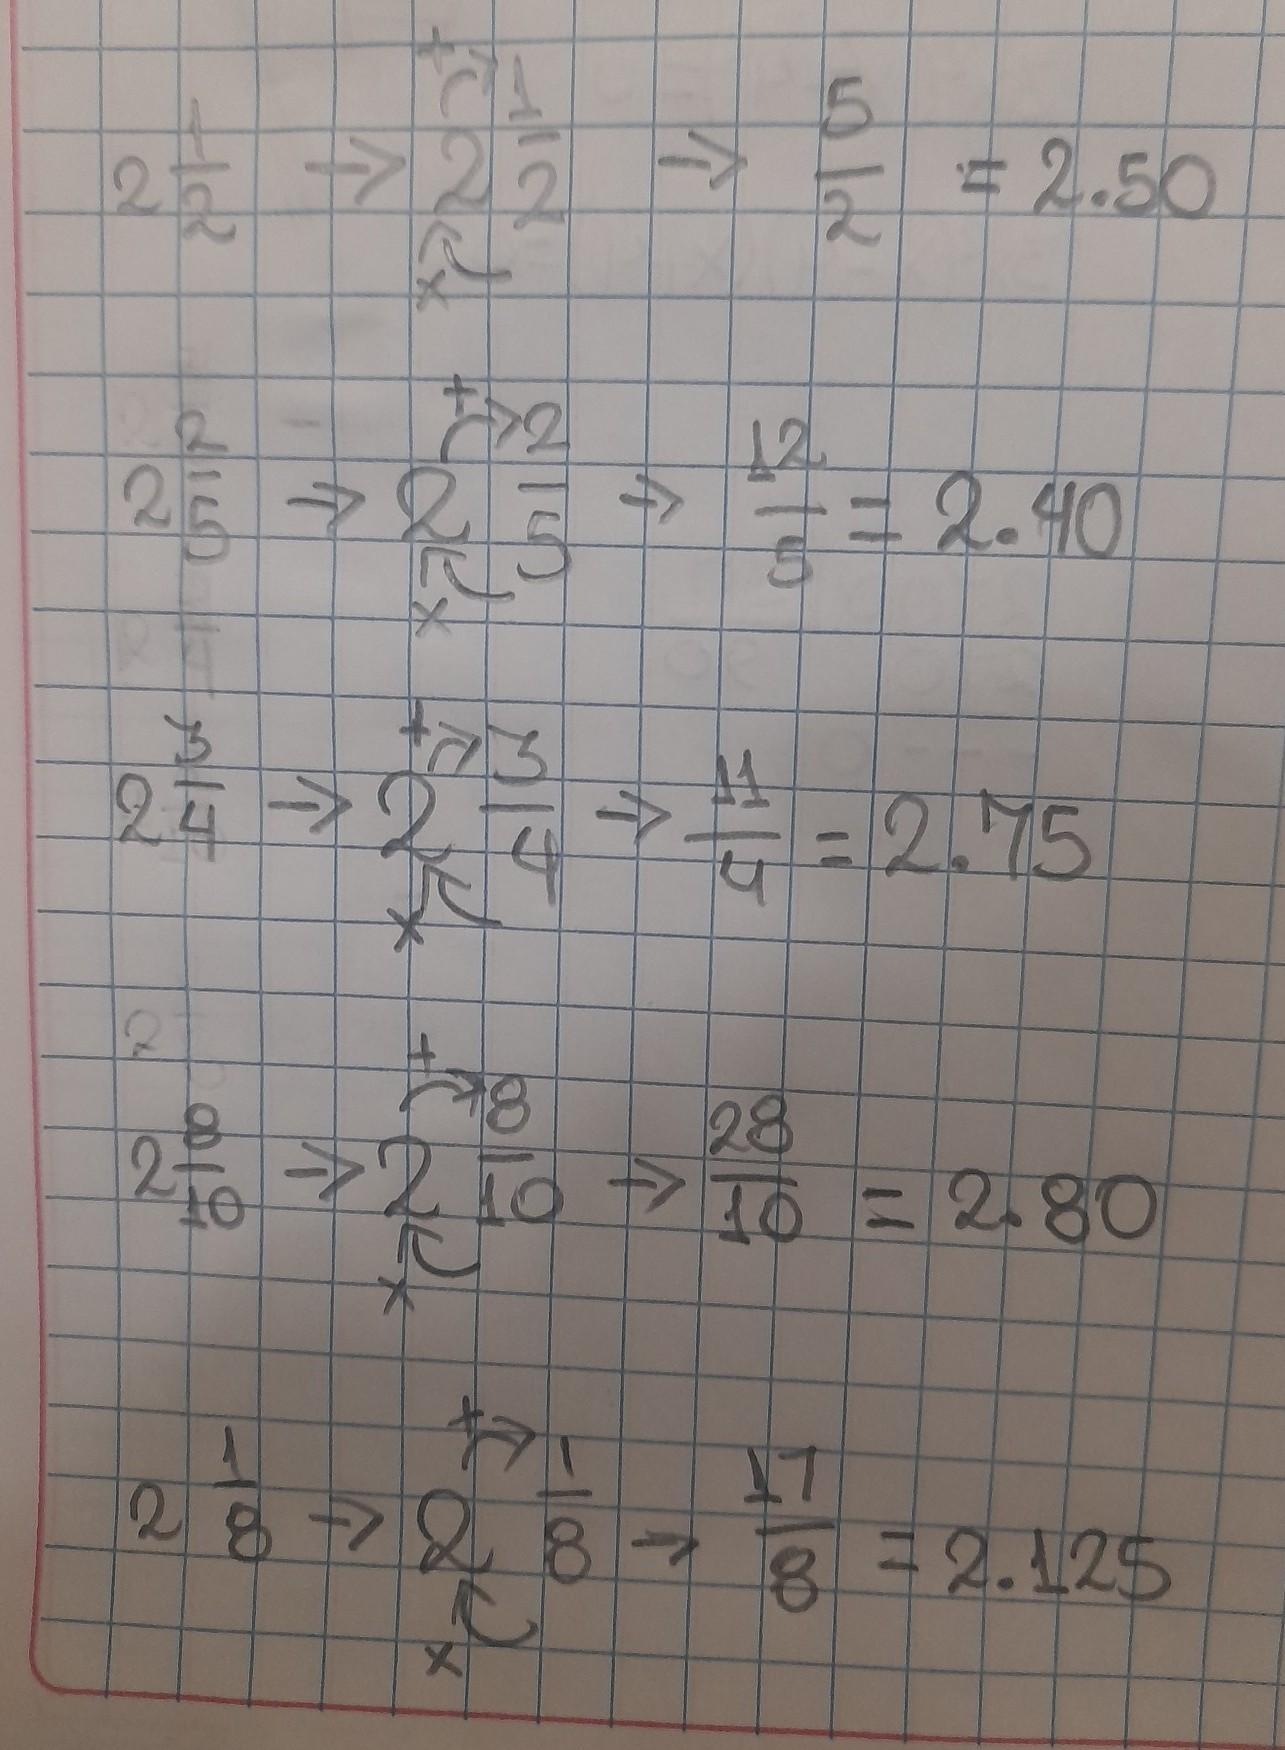 2 1/2 → + 2 1/2 x → 5/2 = 2.50
2 2/5 → + 2 2/5 x → 12/5 = 2.40
2 3/4 → + 2 3/4 x → 11/4 = 2.75
2 8/10 → + 2 8/10 x → 28/10 = 2.80
2 1/8 → + 2 1/8 x → 17/8 = 2.125